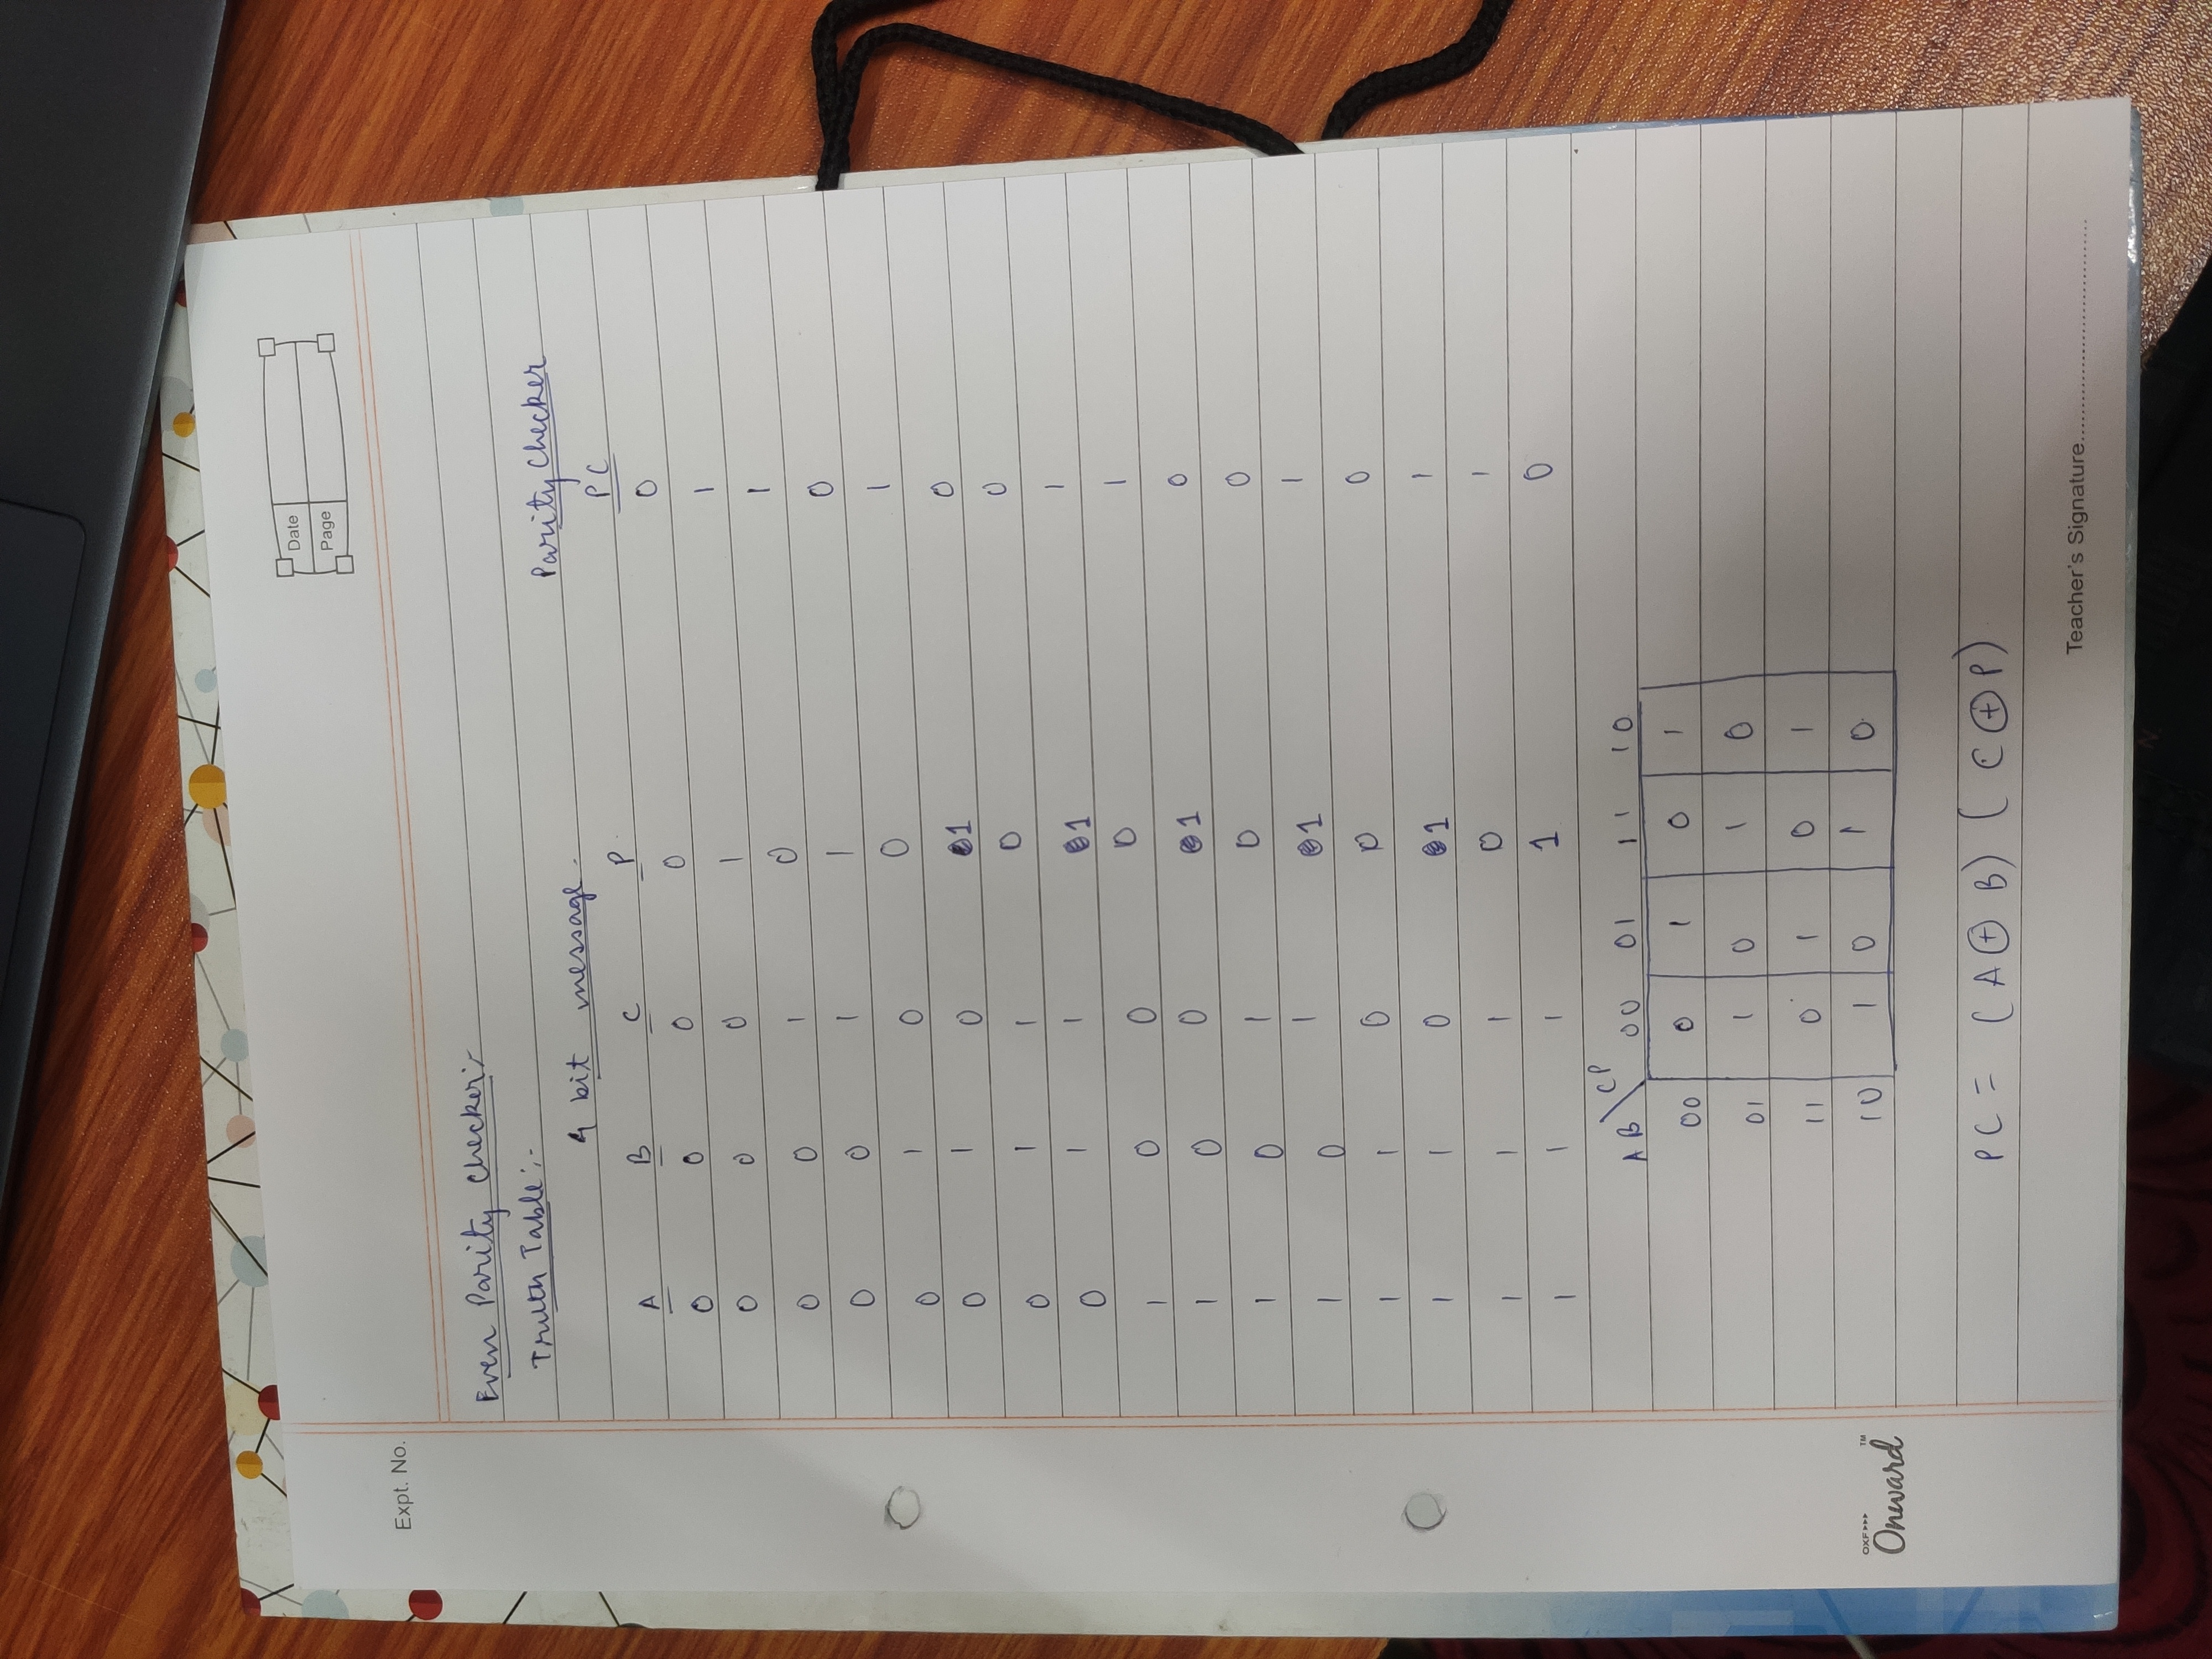 Date
Page
Expt. No.
Even Parity Checker:-
Truth Table:-
4 bit message. Parity Checker
A B C P PC
0 0 0 0 0
0 0 0 1 1
0 0 1 0 1
0 0 1 1 0
0 1 0 0 1
0 1 0 1 0
0 1 1 0 0
0 1 1 1 1
1 0 0 0 1
1 0 0 1 0
1 0 1 0 0
1 0 1 1 1
1 1 0 0 0
1 1 0 1 1
1 1 1 0 1
1 1 1 1 0
AB\CP 00 01 11 10
00 0 1 0 1
01 1 0 1 0
11 0 1 0 1
10 1 0 1 0
OXF▸▸▸ TM
Onward
PC = (A⊕B) (C⊕P)
Teacher's Signature..................................